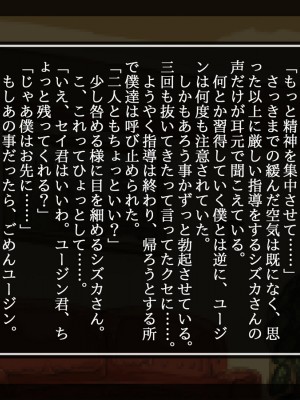 「もっと精神を集中させて……」
さっきまでの緩んだ空気は既になく、思
った以上に厳しい指導をするシズカさんの
声だけが耳元で聞こえている。
何とか習得していく僕とは逆に、ユージ
ンは何度も注意されていた。
しかもあろう事かずっと勃起させている。
三回も抜いてきたって言ってたクセに……。
ようやく指導は終わり、帰ろうとする所
で僕達は呼び止められた。
「二人ともちょっといい？」
少し咎める様に目を細めるシズカさん。
こ、これってひょっとして……。
「いえ、セイ君はいいわ。ユージン君、ち
ょっと残ってくれる？」
「じゃあ僕はお先に……」
もしあの事だったら、ごめんユージン。